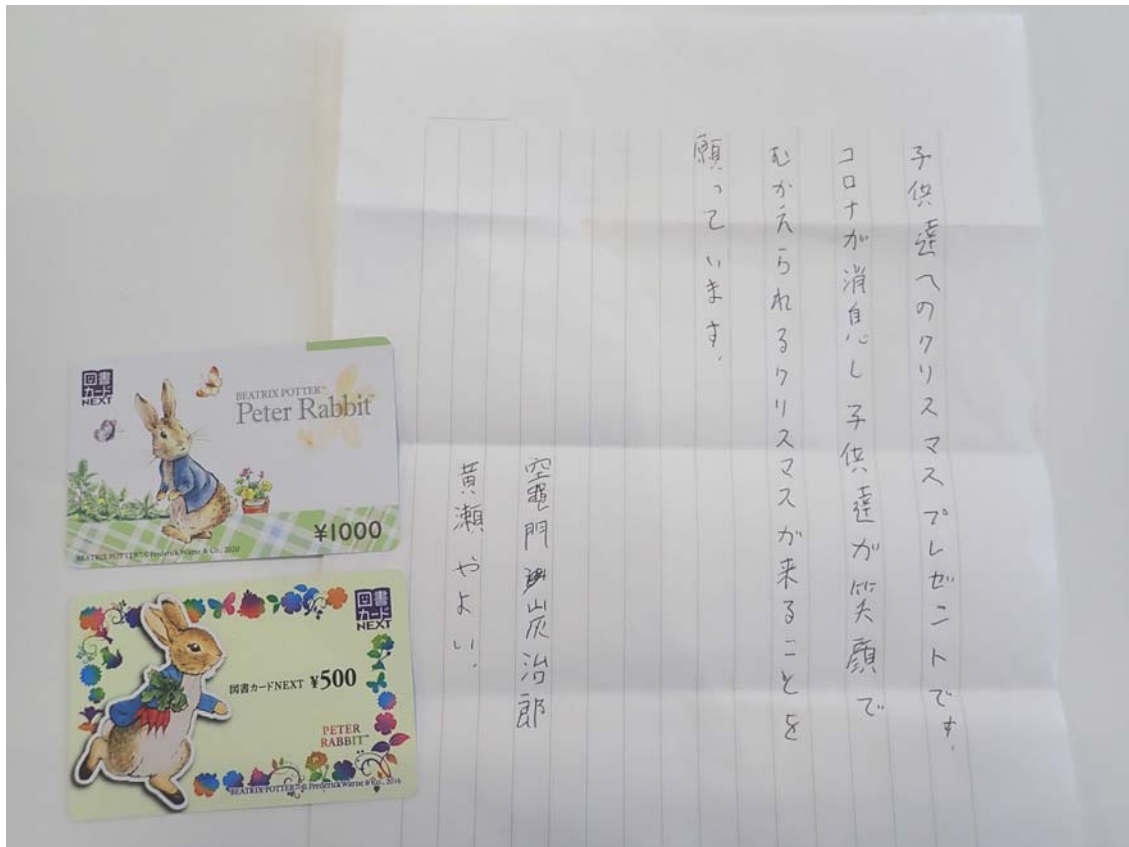 子供達へのクリスマスプレゼントです。
コロナが消息し子供達が笑顔で
むかえられるクリスマスが来ることを
願っています。
竈門炭治郎
黄瀬やよい.
図書カードNEXT
BEATRIX POTTER™
Peter Rabbit™
¥1000
BEATRIX POTTER™ © Frederick Warne & Co., 2020
図書カードNEXT
図書カードNEXT ¥500
PETER RABBIT™
BEATRIX POTTER™ © Frederick Warne & Co., 2016